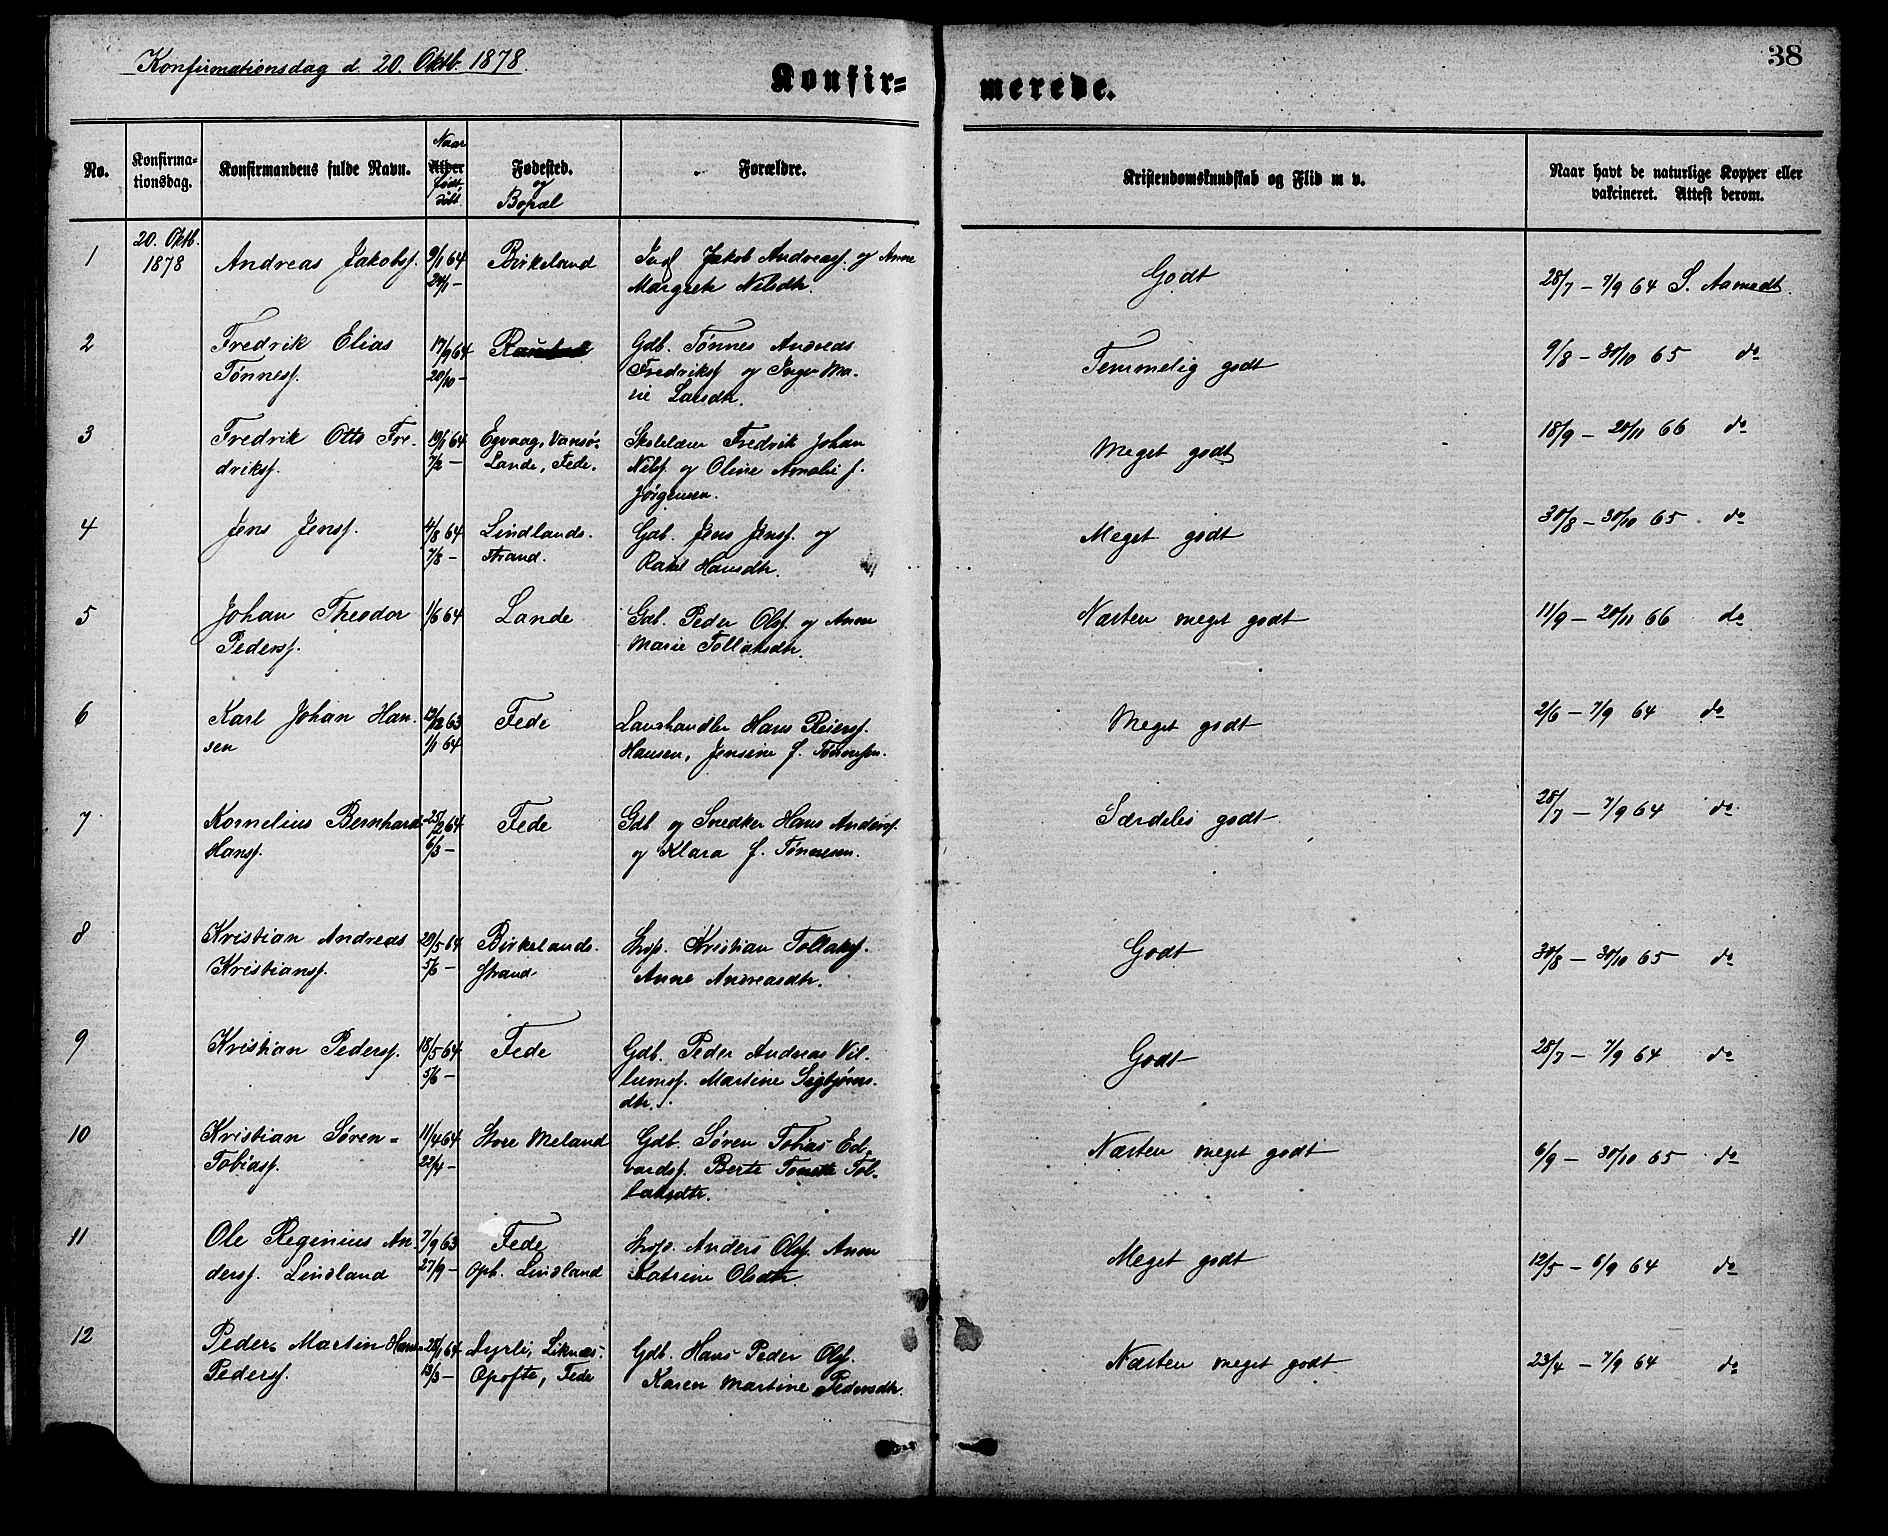 Konfirmationsdag d. 20. Oktb. 1878.
Konfir=
merede.
38
No.
Konfirma-
tionsdag.
Konfirmandens fulde Navn.
Naar
Alder
født
døbt
Fødested.
og
Bopæl
Forældre.
Kristendomskundskab og Flid m v.
Naar havt de naturlige Kopper eller
vakcineret. Attest derom.
1
20. Oktb.
1878
Andreas Jakobsf.
9/1 64
24/1 –
Birkeland
Jakob Andreasf. og Anne
Margrete Nilsdtr.
Godt
28/7 – 7/9 64 S. Aamodt.
2
Fredrik Elias
Tønnesf.
17/9 64
20/10 –
Gdb. Tønnes Andreas
Fredriksf og Inger Ma-
rie Larsdtr.
Temmelig godt
9/8 – 30/10 65 do
3
Fredrik Otto Fre-
driksf.
19/1 64
7/2 –
Egvaag, Vansø.
Lande, Fede.
Skolelærer Fredrik Johan
Nilsf. og Oline Amalie f.
Jörgensen.
Meget godt
18/9 – 20/11 66 do
4
Jens Jensf.
4/8 64
7/8 –
Lindlands-
strand.
Gdb. Jens Jensf. og
Rakel Hansdtr.
Meget godt
30/8 – 30/10 65 do
5
Johan Theodor
Pedersf.
1/6 64
Lande
Gdb. Peder Olsf. og Anne
Marie Tollaksdtr.
Næsten meget godt
11/9 – 20/11 66 do
6
Karl Johan Han-
sen
12/12 63
1/1 64
Fede
Landhandler Hans Reiersf.
Hansen, Jensine f. Tønnesen.
Meget godt
2/6 – 7/9 64 do
7
Kornelius Bernhard
Hansf.
25/2 64
6/3 –
Fede
Gdb og Snedker Hans Andersf.
og Klara f. Tønnesen.
Særdeles godt
28/7 – 7/9 64 do
8
Kristian Andreas
Kristiansf.
20/5 64
5/6 –
Birkelands-
strand
Strp. Kristian Tollaksf.
Anne Andreasdtr.
Godt
30/8 – 30/10 65 do
9
Kristian Pedersf.
18/5 64
5/6 –
Fede
Gdb. Peder Andreas Vil-
lumsf. Martine Sigbjørns-
dtr.
Godt
28/7 – 7/9 64 do
10
Kristian Søren=
Tobiasf.
11/4 64
22/4 –
Store Meland
Gdb. Søren Tobias Ed-
vardsf. Berte Tonette Tol-
laksdtr.
Næsten meget godt
6/9 – 30/10 65 do
11
Ole Reginius An
dersf. Lindland
7/9 63
27/9 –
Fede
Oph. Lindland
Strp. Anders Olsf. Anne
Katrine Olsdtr.
Meget godt
12/5 – 6/9 64 do
12
Peder Martin Hans
Pedersf.
28/1 64
13/3 –
Dyrli, Liknæs.
Opofte, Fede
Gdb. Hans Peder Olsf.
Karen Martine Pedersdtr.
Næsten meget godt
23/4 – 7/9 64 do